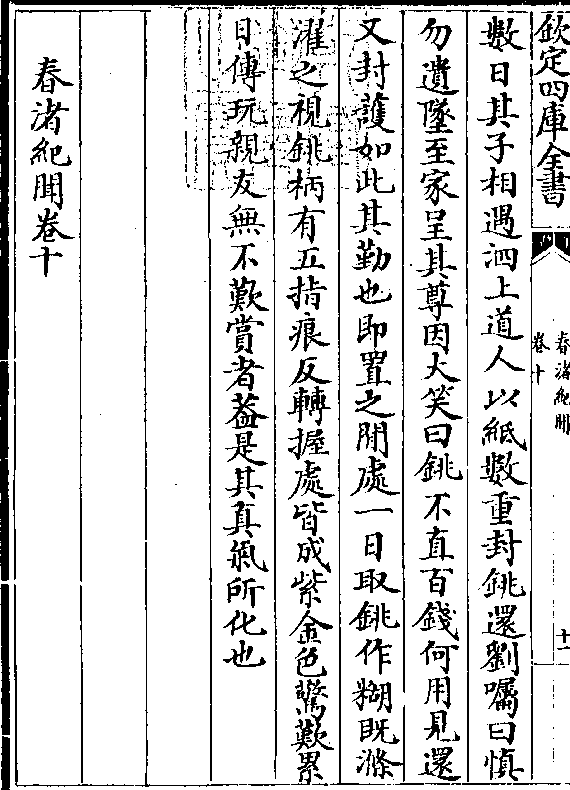 欽定四庫全書
春渚紀聞
卷十
十一
數日其子相遇泗上道人以紙數重封銚還劉囑曰慎
勿遺墜至家呈其尊因大笑曰銚不直百錢何用見還
又封護如此其勤也即置之閒處一日取銚作糊既滌
濯之視銚柄有五指痕反轉握處皆成紫金色驚歎累
日傳玩親友無不歎賞者葢是其真氣所化也
春渚紀聞卷十